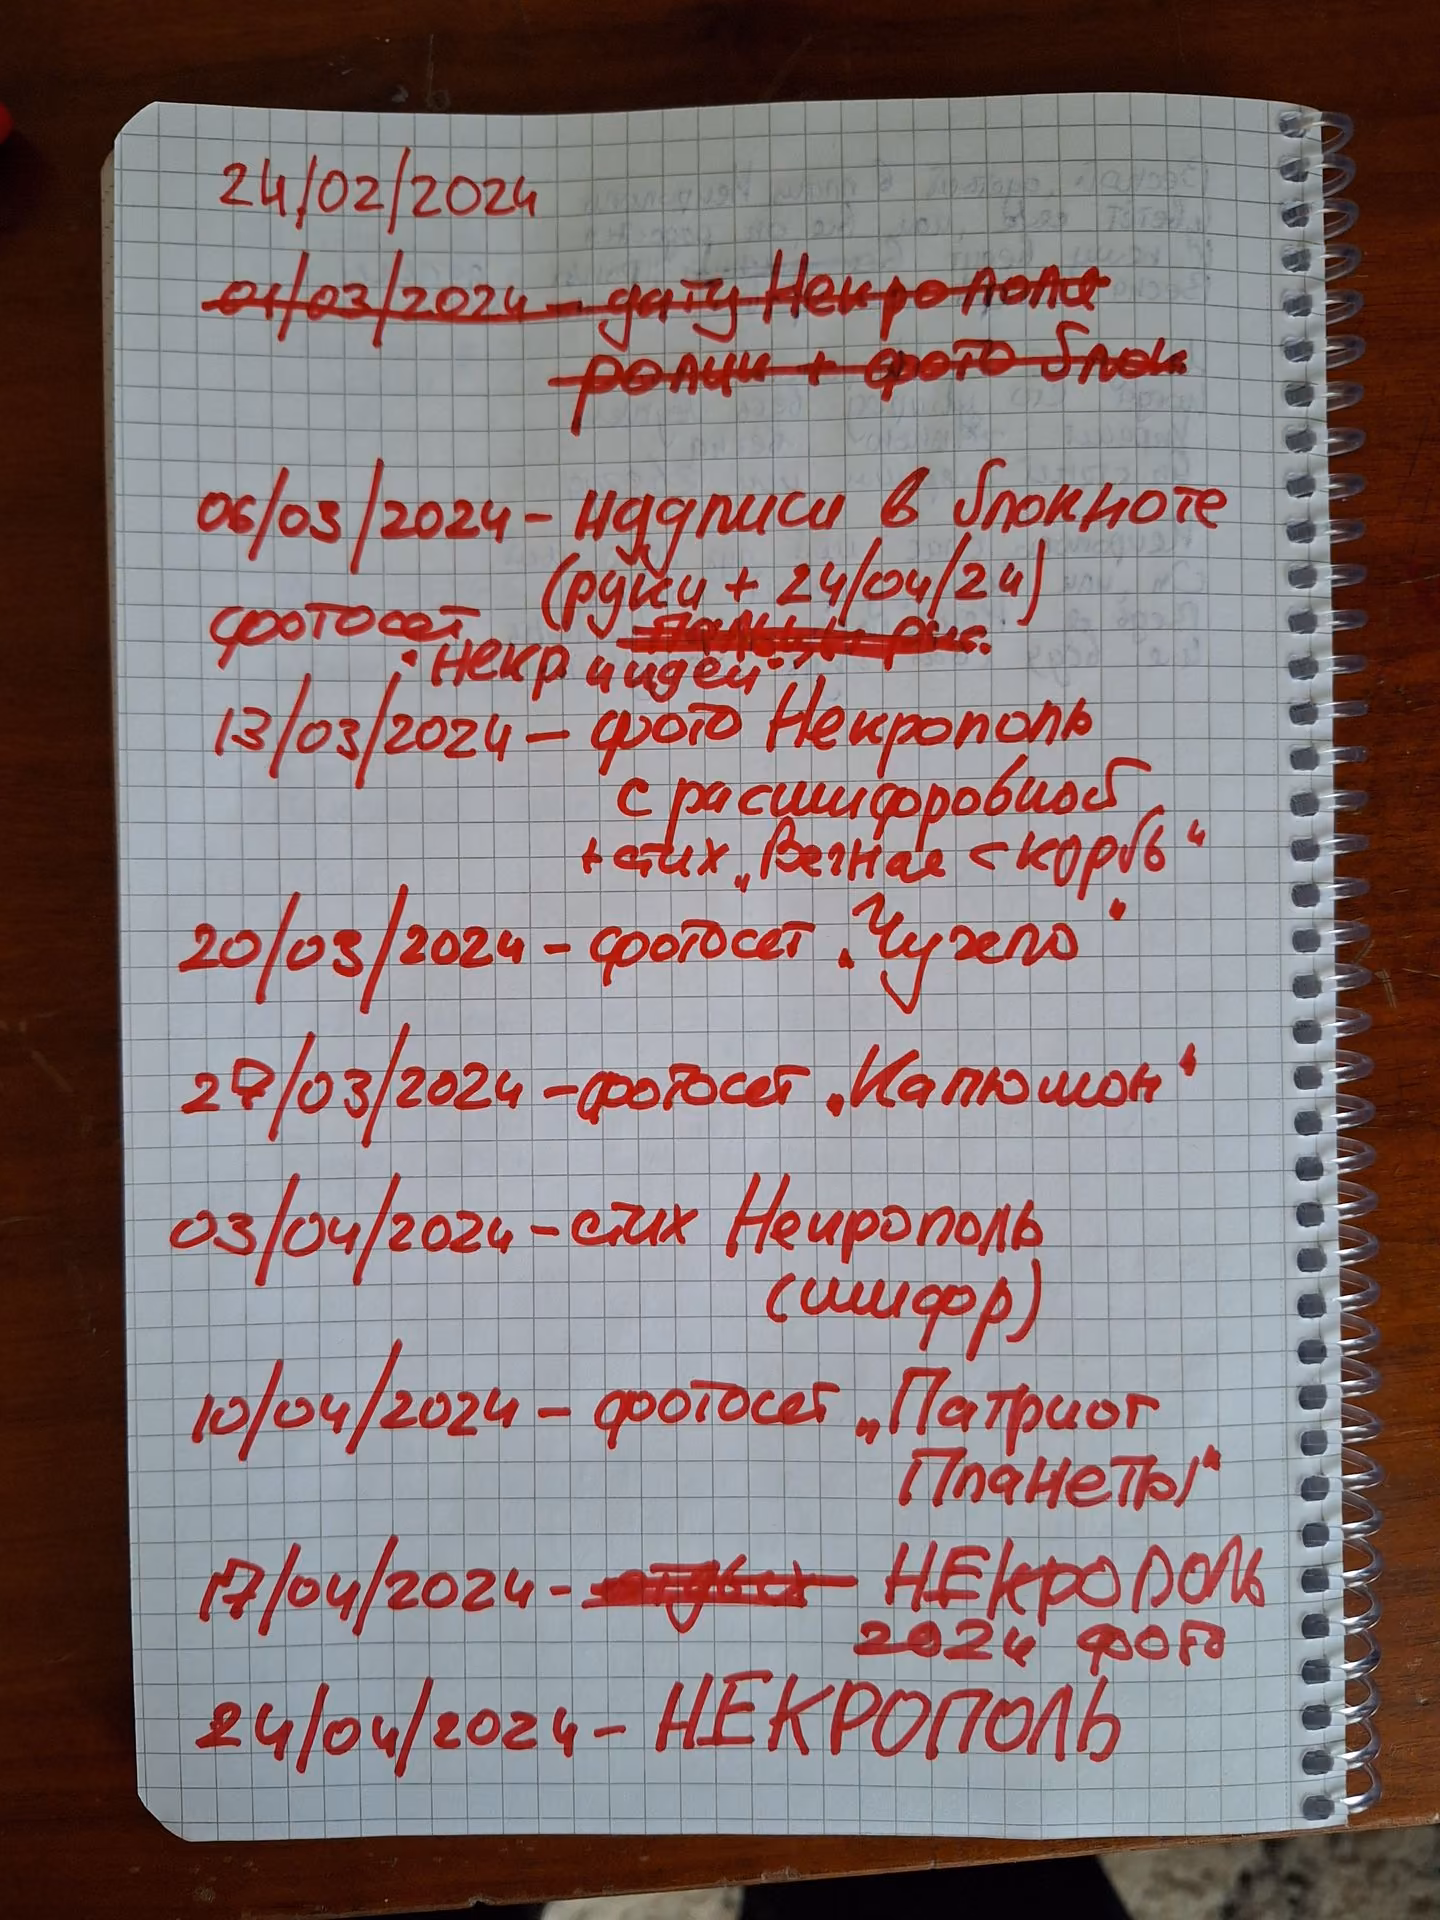 24/02/2024
01/03/2024 - дату Некрополя
ролик + фото блок
06/03/2024 - надписи в блокноте
(руки + 24/04/24)
фотосет
• некр и идеи
13/03/2024 - фото Некрополь
с расшифровкой
+ стих „Вечная скорбь"
20/03/2024 - фотосет „Чучело"
27/03/2024 - фотосет „Капюшон"
03/04/2024 - стих Некрополь
(шифр)
10/04/2024 - фотосет „Патриот
Планеты"
17/04/2024 - НЕКРОПОЛЬ
2024 фото
24/04/2024 - НЕКРОПОЛЬ